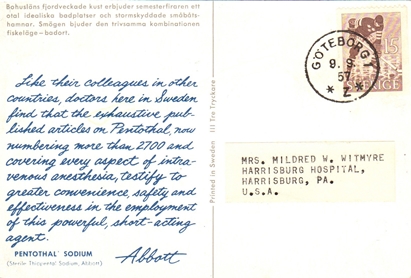 Bohusläns fjordveckade kust erbjuder semesterfiraren ett
otal idealiska badplatser och stormskyddade småbåts-
hamnar. Smögen bjuder den trivsamma kombinationen
fiskeläge – badort.
Like their colleagues in other
countries, doctors here in Sweden
find that the exhaustive pub-
lished articles on Pentothal, now
numbering more than 2700 and
covering every aspect of intra-
venous anesthesia, testify to
greater convenience, safety and
effectiveness in the employment
of this powerful, short-acting
agent.
PENTOTHAL® SODIUM
(Sterile Thiopental Sodium, Abbott)
Abbott
Printed in Sweden III Tre Tryckare
GÖTEBORG 1
9. 9.
57
* Z *
15
SVERIGE
MRS. MILDRED W. WITMYRE
HARRISBURG HOSPITAL,
HARRISBURG, PA.
U.S.A.